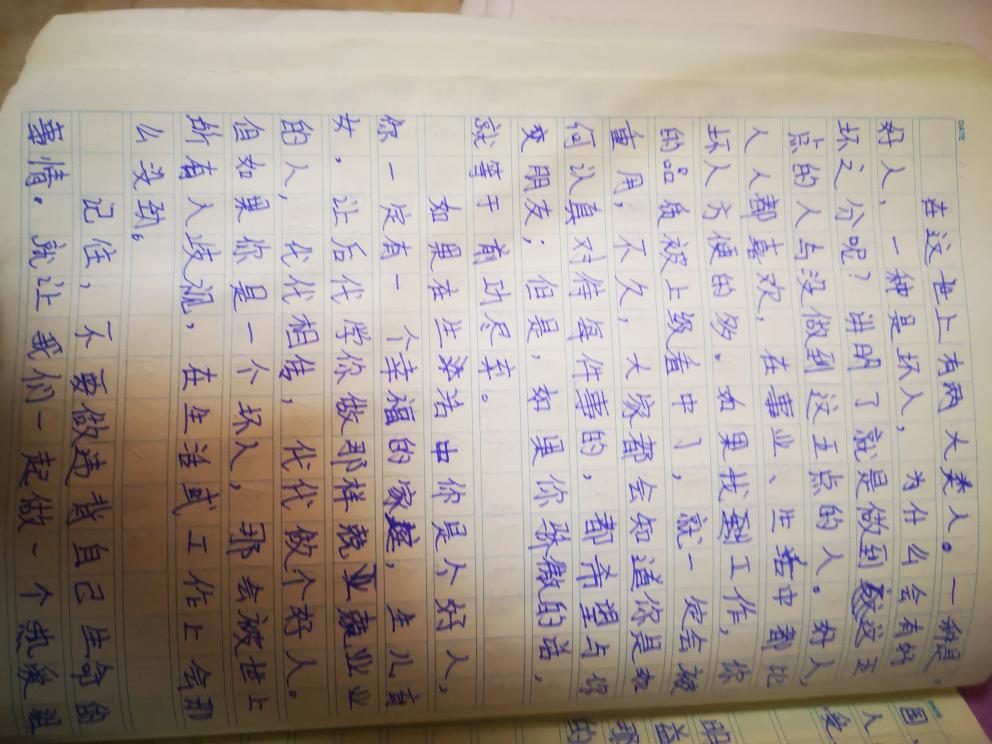 在这世上有两大类人。一种是
好人，一种是坏人，为什么会有好
坏之分呢？讲明了就是做到这五
点的人与没做到这五点的人。好人，
人人都喜欢，在事业、生活中都比
坏人方便的多。如果找到工作，你
的品质被上级看中了，就一定会被
重用，不久，大家都会知道你是如
何认真对待每件事的，都希望与你
交朋友；但是，如果你
就等于前功尽弃。
如果在生活中你是个好人，
你一定有一个幸福的家庭，生儿育
女，让后代学你做那样兢兢业业
的人，代代相传，代代做个好人。
但如果你是一个坏人，那会被世上
所有人歧视，在生活或工作上会那
么没劲。
记住，不要做违背自己生命的
事情。就让我们一起做一个热爱祖
国、
人
爱
明
益
的